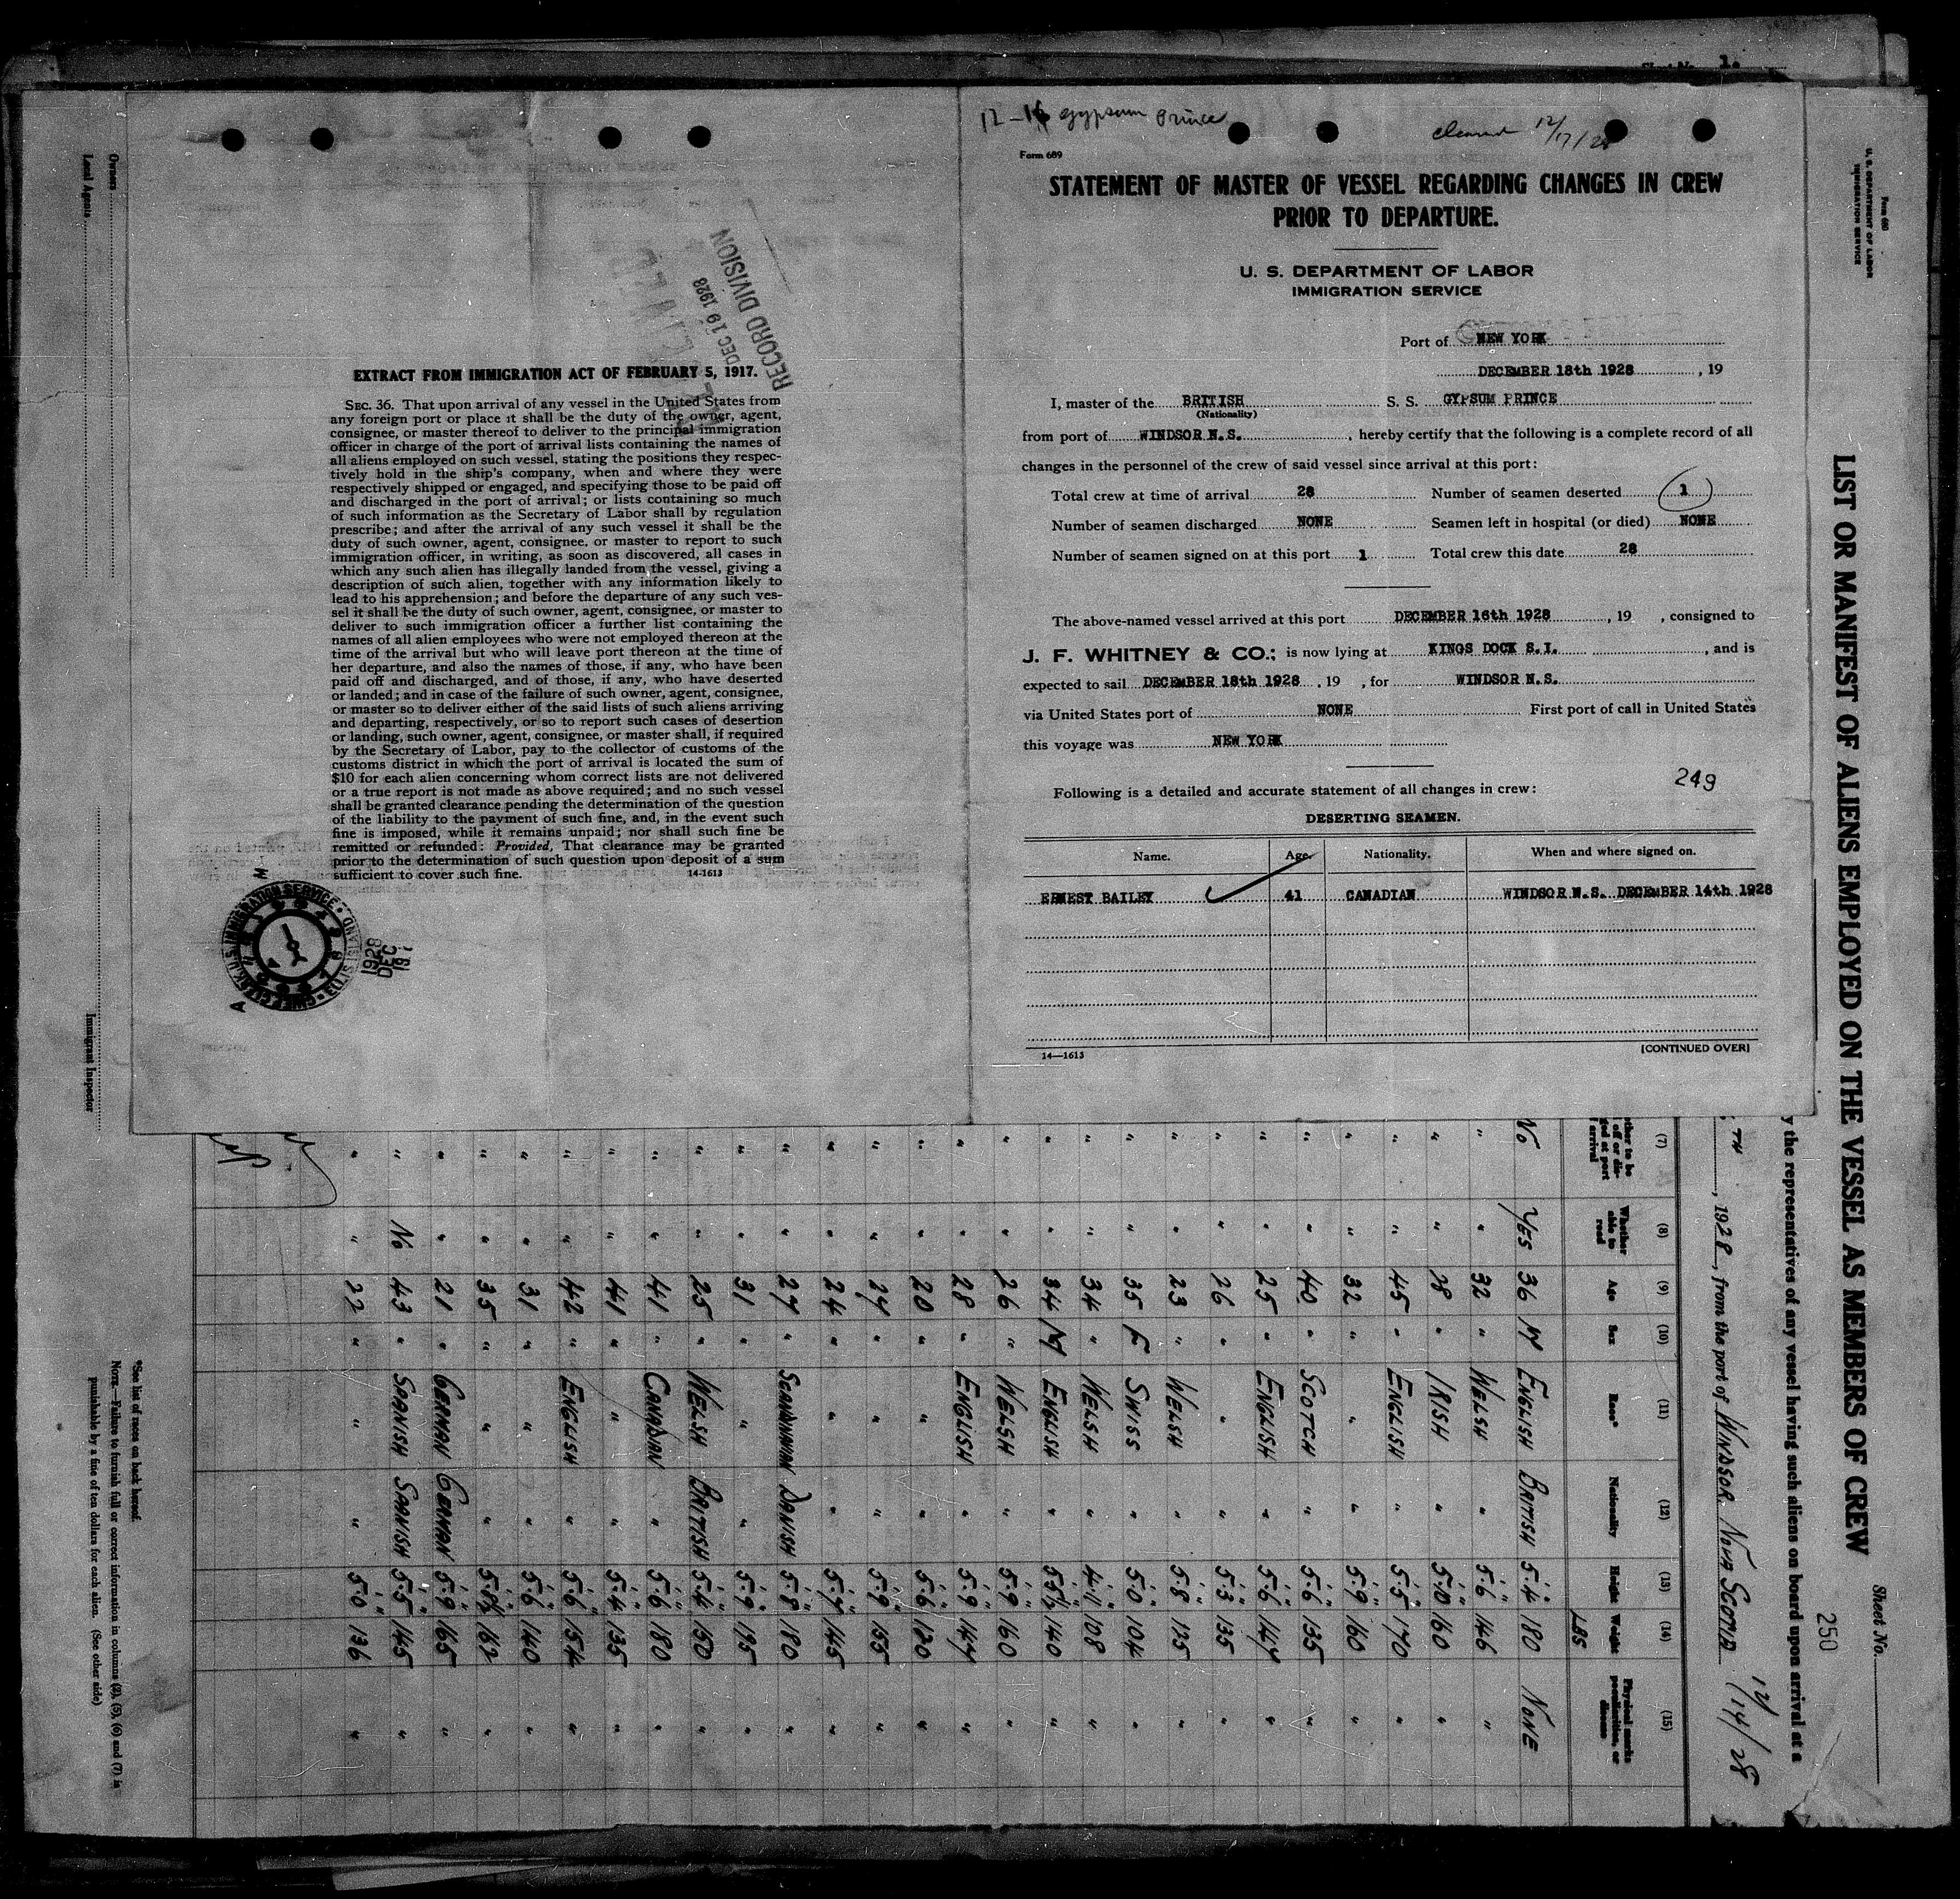 Sheet No. 1.
12-16 Gypsum Prince
cleared 12/17/28
Form 689
STATEMENT OF MASTER OF VESSEL REGARDING CHANGES IN CREW
PRIOR TO DEPARTURE.
U. S. DEPARTMENT OF LABOR
IMMIGRATION SERVICE
Port of NEW YORK
DECEMBER 18th 1928, 19
I, master of the BRITISH S. S. GYPSUM PRINCE
(Nationality)
from port of WINDSOR N.S., hereby certify that the following is a complete record of all
changes in the personnel of the crew of said vessel since arrival at this port:
Total crew at time of arrival 28 Number of seamen deserted 1
Number of seamen discharged NONE Seamen left in hospital (or died) NONE
Number of seamen signed on at this port 1 Total crew this date 28
The above-named vessel arrived at this port DECEMBER 16th 1928, 19 , consigned to
J. F. WHITNEY & CO.; is now lying at KINGS DOCK S.I., and is
expected to sail DECEMBER 18th 1928, 19 , for WINDSOR N.S.
via United States port of NONE First port of call in United States
this voyage was NEW YORK
249
Following is a detailed and accurate statement of all changes in crew:
DESERTING SEAMEN.
Name. Age. Nationality. When and where signed on.
ERNEST BAILEY 41 CANADIAN WINDSOR N.S. DECEMBER 14th 1928
14—1613 [CONTINUED OVER]
RECORD DIVISION
DEC 19 1928
EXTRACT FROM IMMIGRATION ACT OF FEBRUARY 5, 1917.
SEC. 36. That upon arrival of any vessel in the United States from
any foreign port or place it shall be the duty of the owner, agent,
consignee, or master thereof to deliver to the principal immigration
officer in charge of the port of arrival lists containing the names of
all aliens employed on such vessel, stating the positions they respec-
tively hold in the ship's company, when and where they were
respectively shipped or engaged, and specifying those to be paid off
and discharged in the port of arrival; or lists containing so much
of such information as the Secretary of Labor shall by regulation
prescribe; and after the arrival of any such vessel it shall be the
duty of such owner, agent, consignee, or master to report to such
immigration officer, in writing, as soon as discovered, all cases in
which any such alien has illegally landed from the vessel, giving a
description of such alien, together with any information likely to
lead to his apprehension; and before the departure of any such ves-
sel it shall be the duty of such owner, agent, consignee, or master to
deliver to such immigration officer a further list containing the
names of all alien employees who were not employed thereon at the
time of the arrival but who will leave port thereon at the time of
her departure, and also the names of those, if any, who have been
paid off and discharged, and of those, if any, who have deserted
or landed; and in case of the failure of such owner, agent, consignee,
or master so to deliver either of the said lists of such aliens arriving
and departing, respectively, or so to report such cases of desertion
or landing, such owner, agent, consignee, or master shall, if required
by the Secretary of Labor, pay to the collector of customs of the
customs district in which the port of arrival is located the sum of
$10 for each alien concerning whom correct lists are not delivered
or a true report is not made as above required; and no such vessel
shall be granted clearance pending the determination of the question
of the liability to the payment of such fine, and, in the event such
fine is imposed, while it remains unpaid; nor shall such fine be
remitted or refunded: Provided, That clearance may be granted
prior to the determination of such question upon deposit of a sum
sufficient to cover such fine. 14-1613
1928
DEC
Form 680
U. S. DEPARTMENT OF LABOR
IMMIGRATION SERVICE
LIST OR MANIFEST OF ALIENS EMPLOYED ON THE VESSEL AS MEMBERS OF CREW
Sheet No.
250
y the representatives of any vessel having such aliens on board upon arrival at a
TH, 1928, from the port of WINDSOR. NOVA SCOTIA 12/14/28
(7) (8) (9) (10) (11) (12) (13) (14) (15)
Whether able to read Age Sex Race* Nationality Height Weight Physical marks, peculiarities, or disease
LBS
NO YES 36 M ENGLISH BRITISH 5.4 180 NONE
" " 32 " WELSH " 5.6 146 "
" " 28 " IRISH " 5.10 160 "
" " 45 " ENGLISH " 5.5 170 "
" " 32 " " " 5.9 160 "
" " 40 " SCOTCH " 5.6 135 "
" " 25 " ENGLISH " 5.6 147 "
" " 26 " " " 5.3 135 "
" " 23 " WELSH " 5.8 125 "
" " 35 F SWISS " 5.0 104 "
" " 34 " WELSH " 4.11 108 "
" " 34 M ENGLISH " 140 "
" " 26 " WELSH " 5.9 160 "
" " 28 " ENGLISH " 5.9 147 "
" " 20 " " " 5.6 120 "
" " " " " 5.9 155 "
" " 24 " " " 145 "
" " 27 " SCANDINAVIAN DANISH 5.8 180 "
" " 31 " " " 5.9 195 "
" " 25 " WELSH BRITISH 5.4 150 "
" " 41 " CANADIAN " 5.6 180 "
" " 41 " " " 5.4 135 "
" " 42 " ENGLISH " 5.6 154 "
" " 31 " " " 5.6 140 "
" " 35 " " " 162 "
" " 21 " GERMAN GERMAN 5.9 165 "
" NO 43 " SPANISH SPANISH 5.5 145 "
" " 22 " " " 5.0 136 "
*See list of races on back hereof.
NOTE.—Failure to furnish full or correct information in columns (2), (5), (6) and (7) is
punishable by a fine of ten dollars for each alien. (See other side)
Owners
Local Agents
Immigrant Inspector